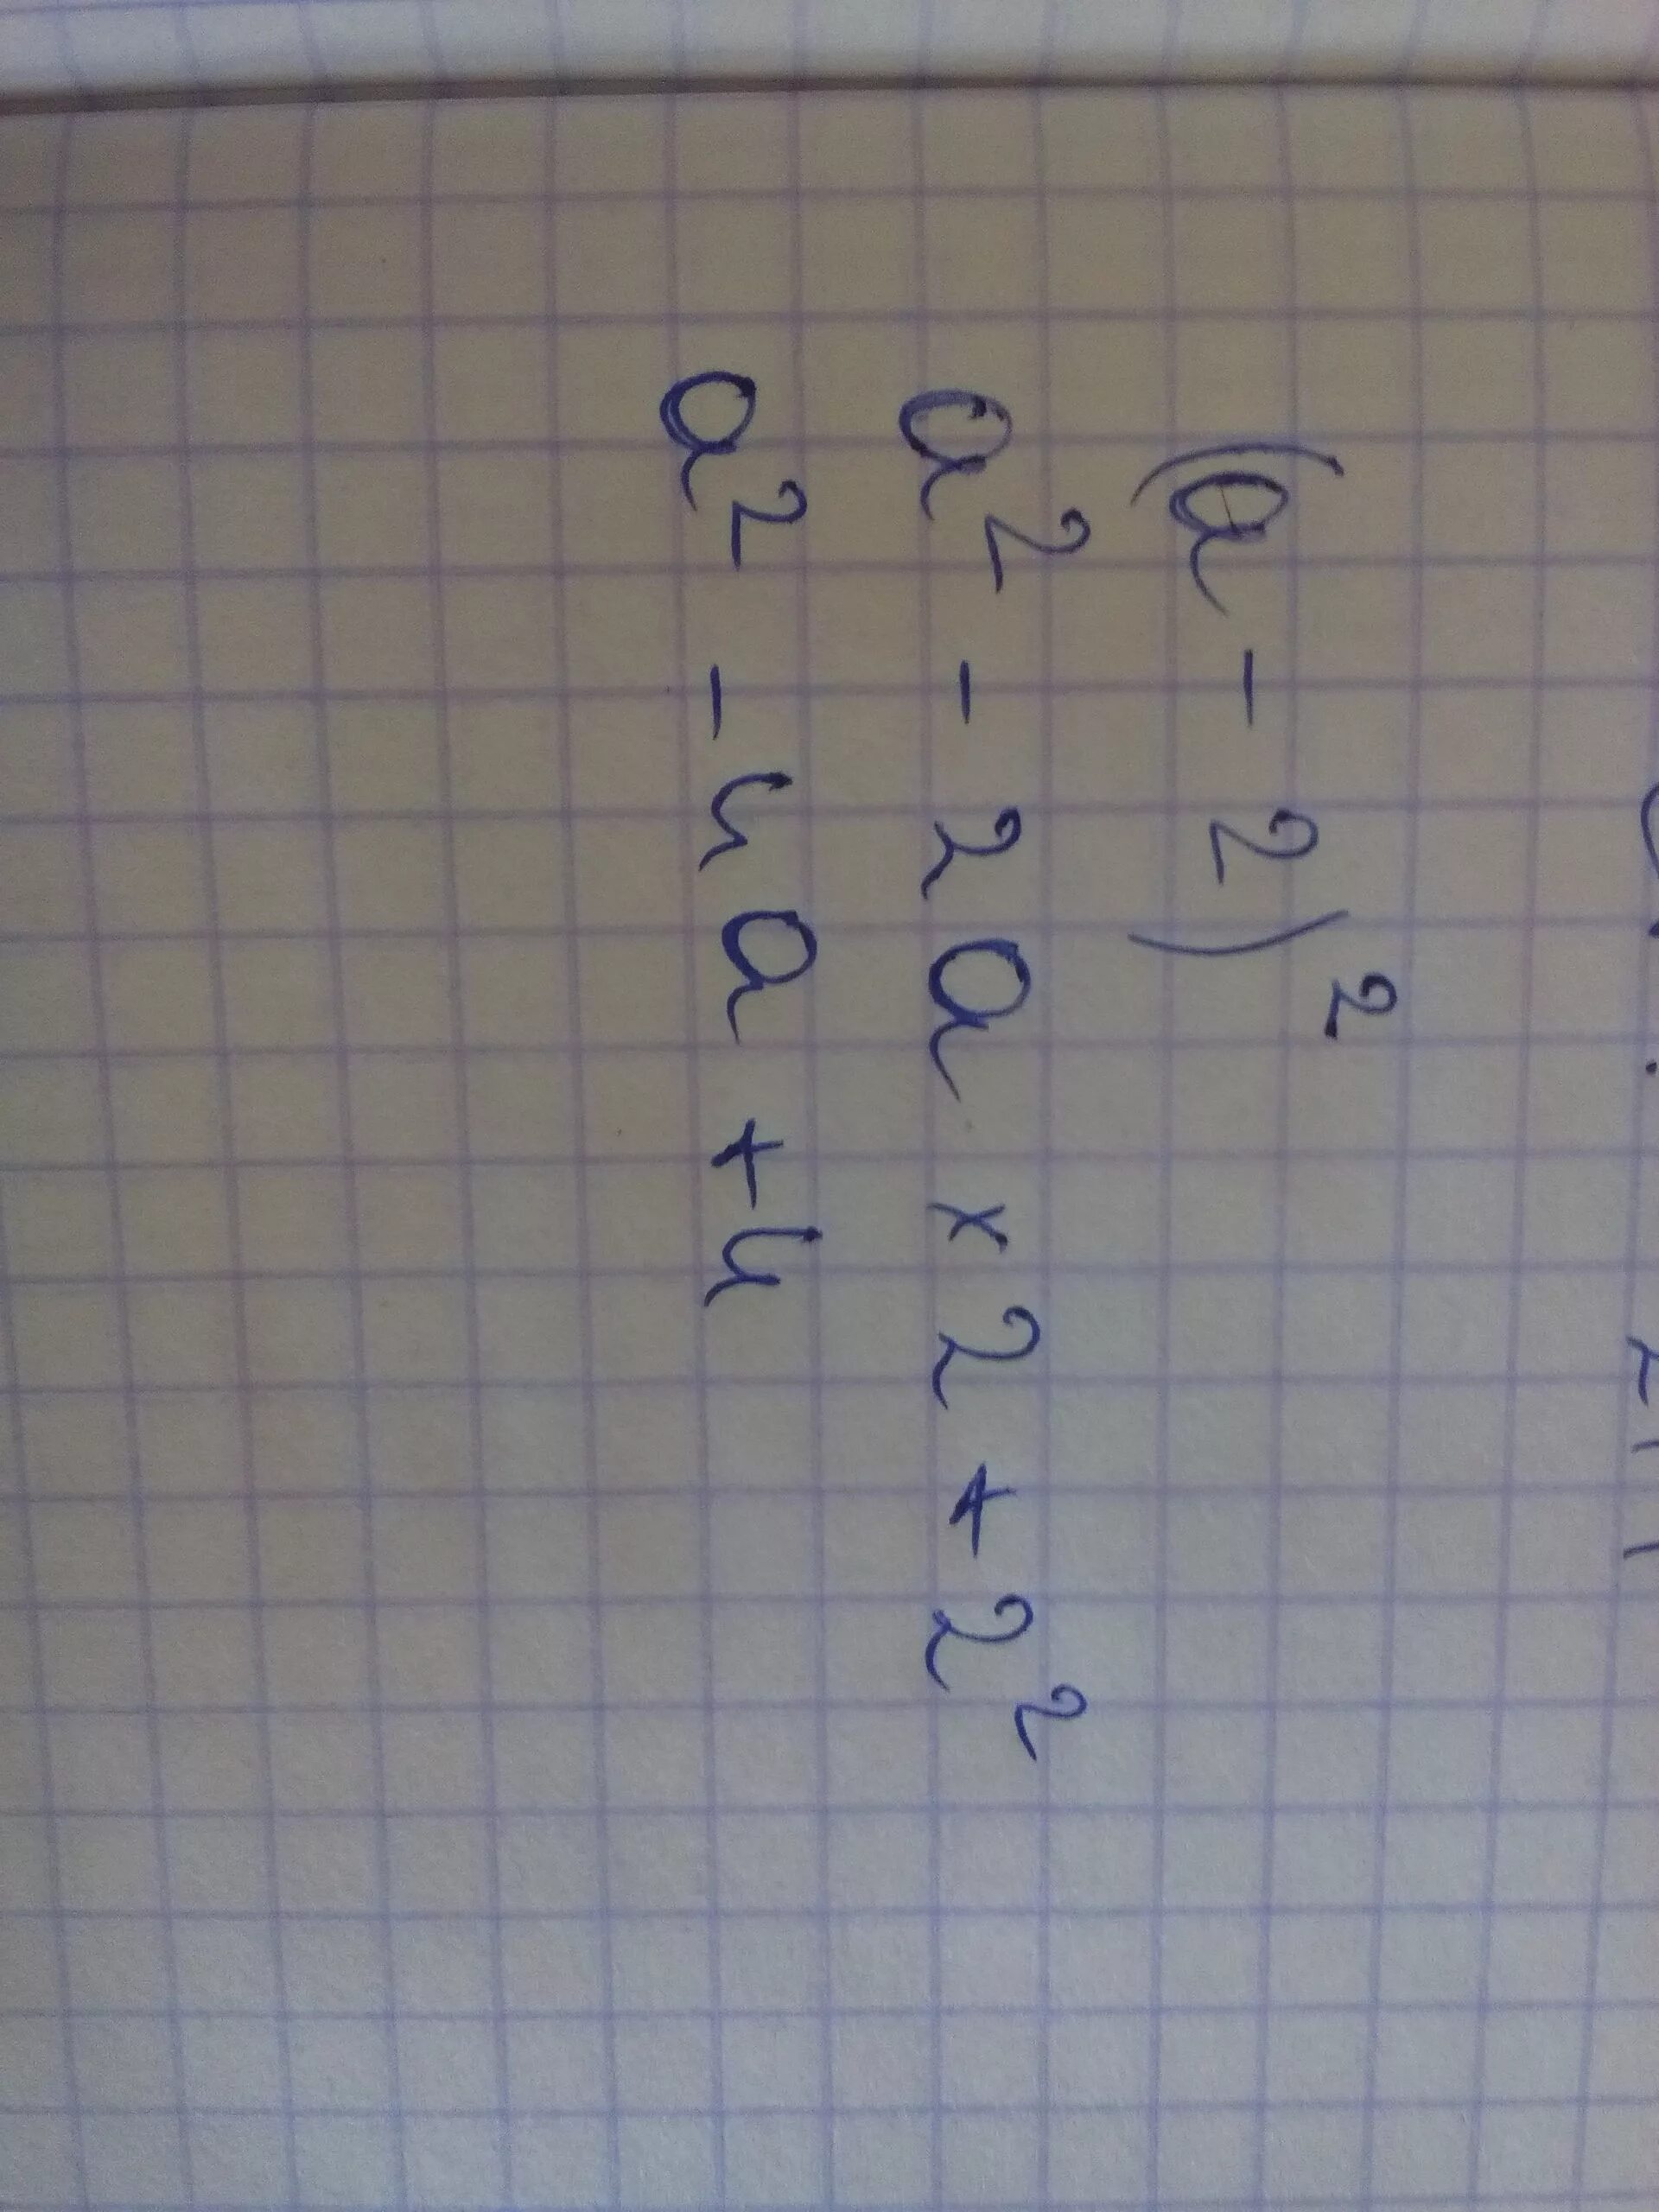 (a - 2)²
a² - 2a × 2 + 2²
a² - 4a + 4